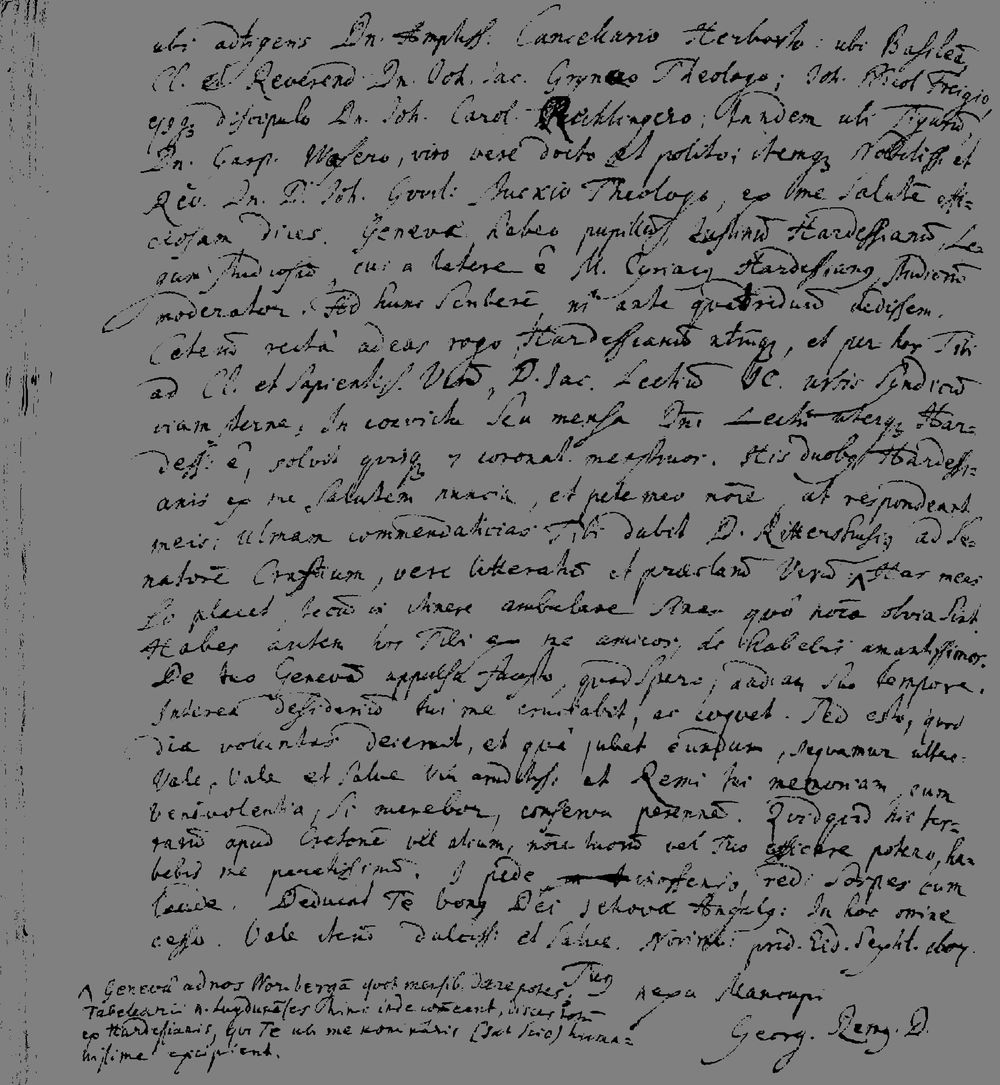 ubi adtigeris Dn. Ampliss. Cancellario Herbosto: ubi Basileā,
Cl. et Reverend. Dn. Joh. Jac. Grynæo Theologo; Joh. Nicol Freigio,
ejusq; discipulo Dn. Joh. Carol. Rechlingero; Tandem ubi Tigurū,
Dn. Casp. Wasero, viro vere docto et polito; itemq; Nobiliss. et
Rev. Dn. D. Joh. Guil: Stuckio Theologo, ex me Salutē offi-
ciosam dices. Genevæ habeo pupillū, Hardessianū, Le-
gum studiosū, cui a latere ē M. Cyriacus Hardessianus, studiorū
moderator. Ad hunc scriberē, ni ante quatriduū dedissem.
Ceterū rectà adeas rogo Hardessianū utrūq;, et per hos Tibi
ad Cl. et Sapientiss. Virū, D. Jac. Lectiū JC. urbis Syndicū
viam sterne. In convictu seu mensa Dni Lectii uterq; Har-
dess: ē, solvit quisq; 7 coronat. menstruos. His duobus Hardessi-
anis ex me Salutem nuncia, et pete meo nōīe, ut respondeant
meis; Ulmam commendaticias Tibi dabit D. Rittershusius ad Se-
natorē Crafftium, vere litteratū et præclarū Virū. ^ Has meas
So placet, tecū in itinere ambulare sinas quô nōīa obvia sint.
Habes autem hos Tibi ex me amicos; do habebis amantissimos.
De tuo Genevā appulsu fausto, quod spero, audiam suo tempore.
Interea desideriū tui me cruciabit, ac coquet. Sed esto, quod
diæ voluntas decernit, et quà jubet eundum, sequamur ultro.
Vale, Vale et Salve Vir eruditiss: et Remi tui memoriam, cum
benevolentia, si merebor, conserva perennē. Quidquid hic ter-
rarū apud Cretonē vel alium, nōīe tuorū vel Tuo efficere potero, ha-
bebis me paratissimū. I pede inoffenso, redi sospes cum
laude. Deducat Te bonus Dei Jehovæ Angelus: In hoc omine
cesso. Vale iterū dulciss: et salve. Norimb: prid. Eid. Sept.
Tuus nexu Mancupi
Georg. Remus. D.
^ Genevâ ad nos Norbergā quot mensib. dare potes.
Tabellarii n. Lugdunēses Thini inde cōmeant, disces totū
ex Hardessianis, qui Te ubi me nominâris (sat scio) huma-
nissime excipient.